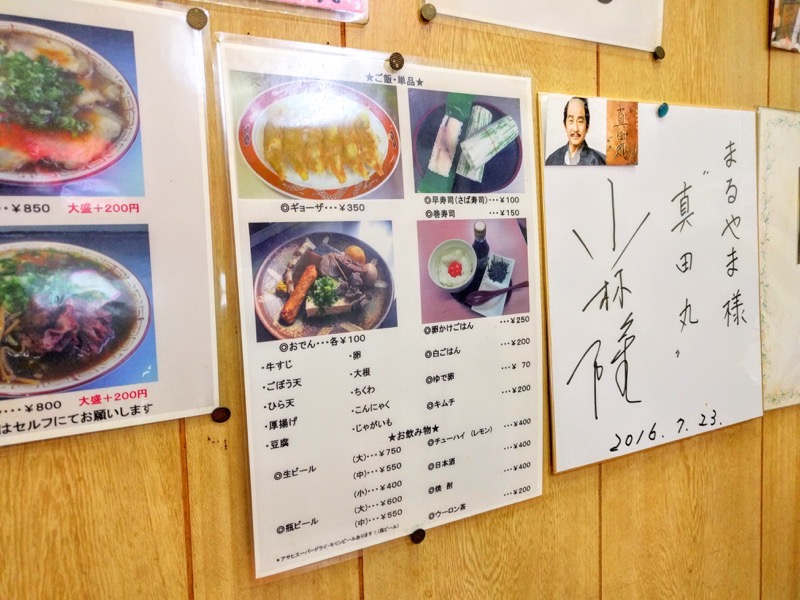 ・・・￥850 大盛＋200円
・・・￥800 大盛＋200円
はセルフにてお願いします
★ご飯・単品★
◎ギョーザ・・・￥350
◎早寿司(さば寿司)・・・￥100
◎巻寿司 ・・・￥150
◎おでん・・・各￥100
・牛すじ ・卵
・ごぼう天 ・大根
・ひら天 ・ちくわ
・厚揚げ ・こんにゃく
・豆腐 ・じゃがいも
◎卵かけごはん ・・・￥250
◎白ごはん ・・・￥200
◎ゆで卵 ・・・￥70
◎キムチ ・・・￥200
★お飲み物★
◎生ビール (大)・・・￥750
(中)・・・￥550
(小)・・・￥400
◎瓶ビール (大)・・・￥600
(中)・・・￥550
◎チューハイ (レモン) ・・・￥400
◎日本酒 ・・・￥400
◎焼酎 ・・・￥400
◎ウーロン茶 ・・・￥200
＊アサヒスーパードライ・キリンビールあります！(瓶ビール)
真田丸
まるやま様
"真田丸"
小林隆
2016.7.23.